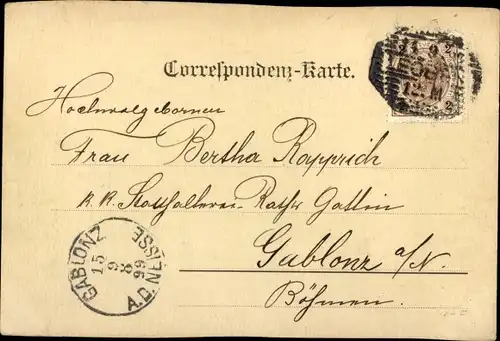 Correspondenz-Karte.
Hochwolgebornen
Frau Bertha Rapprich
k. k. Statthalterei-Raths Gattin
Gablonz a/N.
Böhmen.
GABLONZ
A.D. NEISSE
15
9
8
99
2 2
2